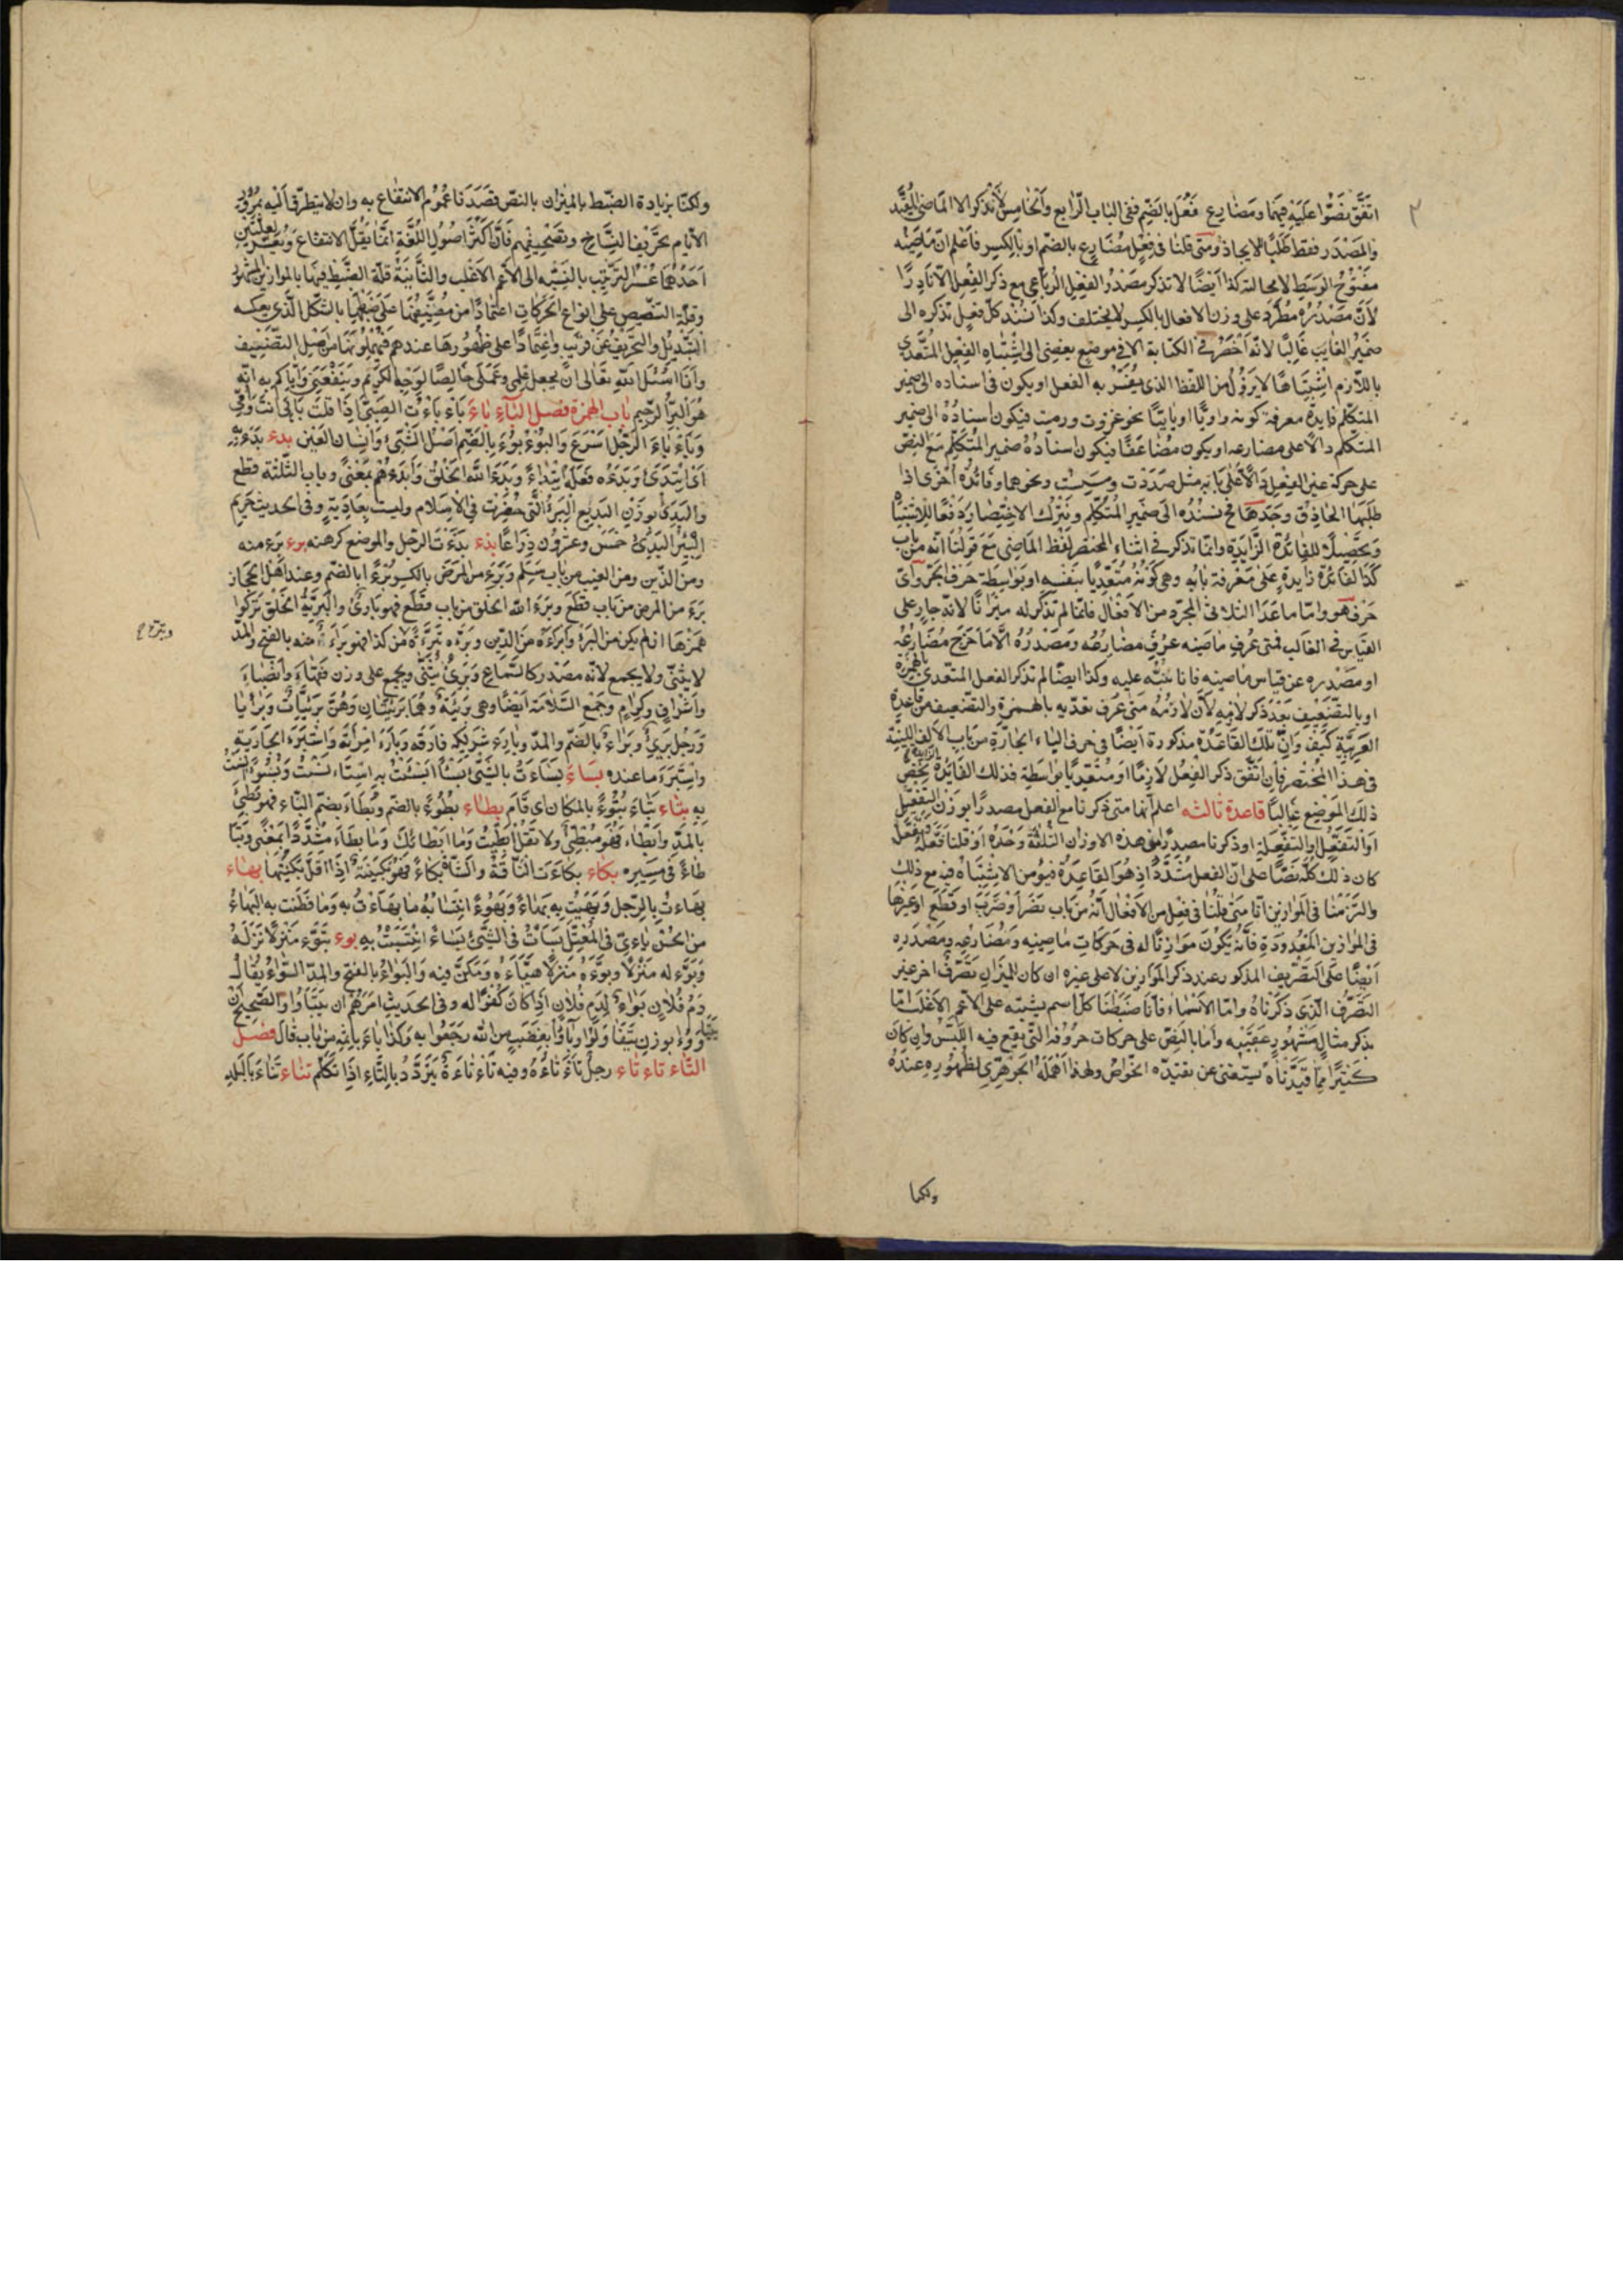 اتفق نصوا عليه فيها ومضارع فعل بالضم ففى الباب الرابع والخامس لا نذكر الا الماضى المقيد
والمصدر فقط طلبا للايجاز ومتى قلنا فى فعل مضارع بالضم او بالكسر فاعلم ان ماضيه
مفتوح الوسط لا محالة كذا ايضا لا نذكر مصدر الفعل الرباعى مع ذكر الفعل الا نادرا
لان مصدره مطرد على وزن الافعال بالكسر لا يختلف وكذا نسند كل فعل نذكره الى
ضمير الغايب غالبا لانه اخصر فى الكتابة الا فى موضع يفضى الى اشتباه الفعل المتعدى
باللازم اشتباها لا يزول من اللفظ الذى يفسر به الفعل او يكون فى اسناده الى ضمير
المتكلم فايدة معرفة كونه واويا او يايئا نحو غزوت ورميت فيكون اسناده الى ضمير
المتكلم دالا على مضارعه او يكون مضاعفا فيكون اسناده ضمير المتكلم مع النص
على حركة عين الفعل دالا على بابه مثل صددت ومسست ونحوها وفائدة اخرى اذا
طلبها الحاذق وجدها فح نسنده الى ضمير المتكلم ونترك الاختصار دفعا للاشتباه
وتحصيلا للفائدة الزايدة وانما نذكر فى اثناء المختصر لفظ الماضى مع قولنا انه من باب
كذا لفائدة زايدة على معرفة بابه وهى كونه متعديا بنفسه او بواسطة حرف الجر واى
حرف هو واما ما عدا الثلاثى المجرد من الافعال فانما لم نذكر له ميزانا لانه جار على
القياس فى الغالب فمتى عرف ماضيه عرف مضارعه ومصدره الا ما خرج مضارعه
او مصدره عن قياس ماضيه فانا ننبه عليه وكذا ايضا لم نذكر الفعل المتعدى بالهمزة
او بالتضعيف بعد ذكر لازمه لان لازمه متى عرف تعديه بالهمزة والتضعيف من قاعدة
العربية كيف وان تلك القاعدة مذكورة ايضا فى حرف الباء الجارة من باب الالف اللينة
فى هذا المختصر فان اتفق ذكر الفعل لازما او متعديا بواسطة فذلك لفايدة تختص
ذلك الموضع غالبا قاعدة ثالثه اعلم انما متى ذكرنا مع الفعل مصدرا بوزن التفعيل
او التفعل والتفعلة او ذكرنا مصدرا من هذه الاوزان الثلاثة وحده او قلنا فعله تفعل
كان ذلك كله نصا على ان الفعل مشدد اذ هو القاعدة فيؤمن الاشتباه فيه مع ذلك
والتزمنا فى الموازين انا متى قلنا فى فعل من الافعال انه من باب نصر او ضرب او قطع او غيرها
فى الموازين المعدودة فانه يكون موازنا له فى حركات ماضيه ومضارعه ومصدره
ايضا على التصريف المذكور عند ذكر الموازين لا على غيره ان كان للميزان تصرف اخر غير
التصرف الذى ذكرناه واما الاسماء فانا ضبطنا كل اسم يشتبه على الاعم الاغلب اما
بذكر مثال مشهور عقيبه واما بالنص على حركات حروفه التى يقع فيه اللبس وان كان
كثيرا مما قيدناه يستغنى عن تقييده الخواص ولهذا اهمله الجوهرى لظهوره عنده
ولكنا
ولكنا بزيادة الضبط بالميزان بالنص قصدنا عموم الانتفاع به وان لا يتطرق اليه بمرور
الايام تحريف النساخ وتصحيفهم فان اكثر اصول اللغة انما يقل الانتفاع ويعسر لعلتين
احدهما عسر الترتيب بالنسبة الى الاعم الاغلب والثانية قلة الضبط فيها بالموازين المشهورة
وقلة التنصيص على انواع الحركات اعتمادا من مصنفيها على ضبطها بالشكل الذى يعكسه
التبديل والتحريف عن قريب واعتمادا على ظهورها عندهم فيهملونها من اصل التصنيف
وانا اسئل الله تعالى ان يجعل علمى وعملى خالصا لوجهه الكريم وينفعنى واياكم به انه
هو البر الرحيم باب الهمزة فصل الباء باء باء باءت الصبى اذا قلت بابى انت وامى
وباء باء الرجل اسرع والبؤبؤ بالضم اصل الشئ وانسان العين بدء بدء به
اى ابتدئ وبدءه فعله ابتداء وبدء الله الخلق وابدءهم بمعنى وباب الثلثة قطع
والبدئ بوزن البديع البئر التى حفرت فى الاسلام وليست بعادية وفى الحديث حريم
البئر البدئ خمس وعشرون ذراعا بذء بذءت الرجل والموضع كرهته برء برء منه
ومن الدين ومن العيب من باب سلم وبرء من المرض بالكسر برءا بالضم وعند اهل الحجاز
برء من المرض من باب قطع وبرء الله الخلق من باب قطع فهو بارئ والبرية الخلق تركوا
همزها ان لم يكن من البرى وابرءه من الدين وبرءه تبرئة من كذا فهو براء منه بالفتح والمد
لا يثنى ولا يجمع لانه مصدر كالسماع وبرئ يثنى ويجمع على وزن فقهاء وانصباء
واشراف وكرام وجمع السلامة ايضا وهى بريئة وهما بريئتان وهن بريئات وبرايا
ورجل برئ وبراء بالضم والمد وبارء شريكه فارقه وبارء امرأته واستبرء الجارية
واستبرء ما عنده بساء بساءت بالشئ بسئا
به بتاء بتاء بتوءا بالمكان اى قام بطاء بطوء بالضم وبطاء بضم الباء فهو بطئ
بالمد وابطاء فهو مبطئ ولا تقل ابطيت وما ابطائك وما بطاء مشددا بمعنى وتبا
طاء فى مسيره بكاء بكاءت الناقة والشاة بكاء فهو بكيئة اذا قل لبنها بهاء
بهاءت بالرجل وبهيت به بهاء وبهوءا انست به وما بهاءت به وما فطنت به البهاء
من الحسن باءى فى المعتل بساءت فى الشئ بساء بوء تبوء منزلا نزله
وبوء له منزلا وبوءه منزلا هياءه ومكن فيه والبواء بالفتح والمد السواء يقال
دم فلان بواء لدم فلان اذا كان كفوا له وفى الحديث امرهم ان يتباوؤا والصحيح ان
يتباوؤا بوزن يتقاولوا وباؤا بغضب من الله رجعوا به وكذا باء باثمه من باب قال فصل
التاء تاء تاء رجل تاءتاء وفيه تاءتاءة يتردد بالتاء اذا تكلم تناء تناء بالبلد